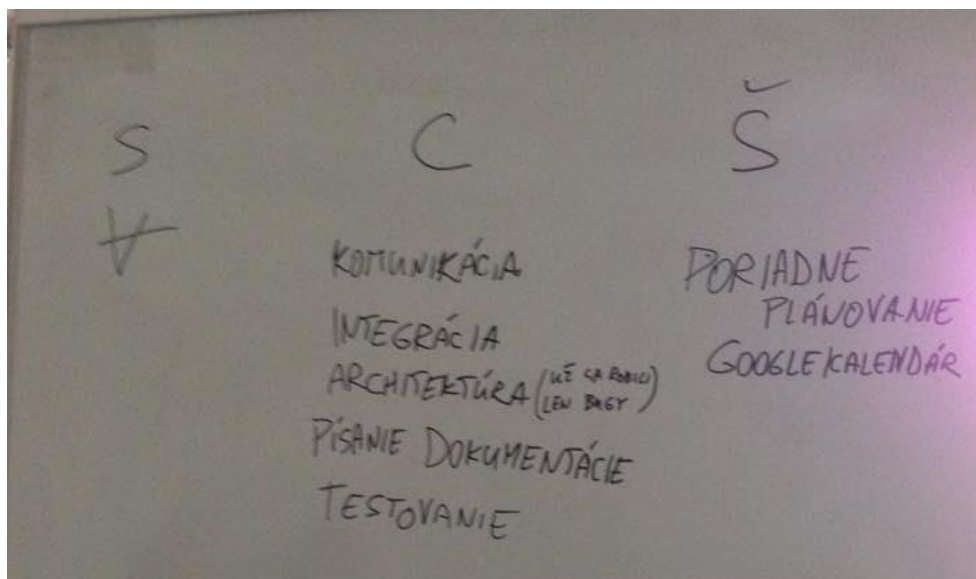 S C Š
∀
KOMUNIKÁCIA
INTEGRÁCIA
ARCHITEKTÚRA (UŽ SA ROBILI
LEN BAGY)
PÍSANIE DOKUMENTÁCIE
TESTOVANIE
PORIADNE
PLÁNOVANIE
GOOGLE KALENDÁR